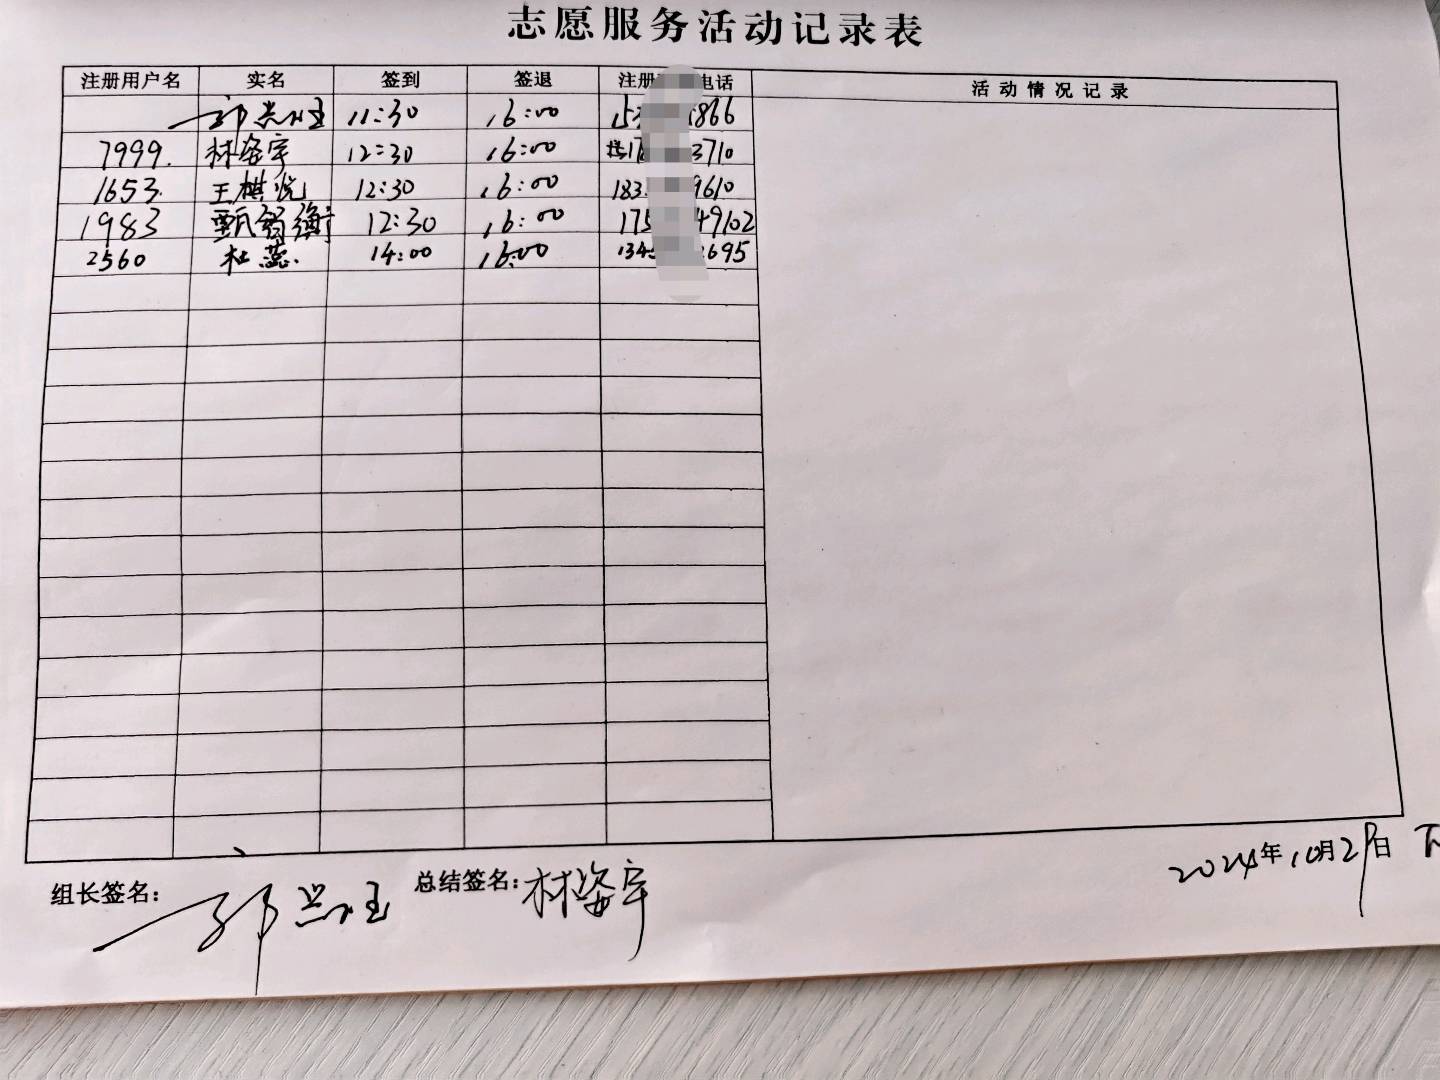 志愿服务活动记录表
注册用户名 实名 签到 签退 注册 电话 活动情况记录
11:30 16:00 866
7999. 林姿宇 12:30 16:00 3710
1653. 王棋悦 12:30 16:00 183 9610
1983 甄 衡 12:30 16:00 175 49102
2560 杜蕊. 14:00 16:00 134 695
组长签名: 总结签名:林姿宇 2024年10月29日 下